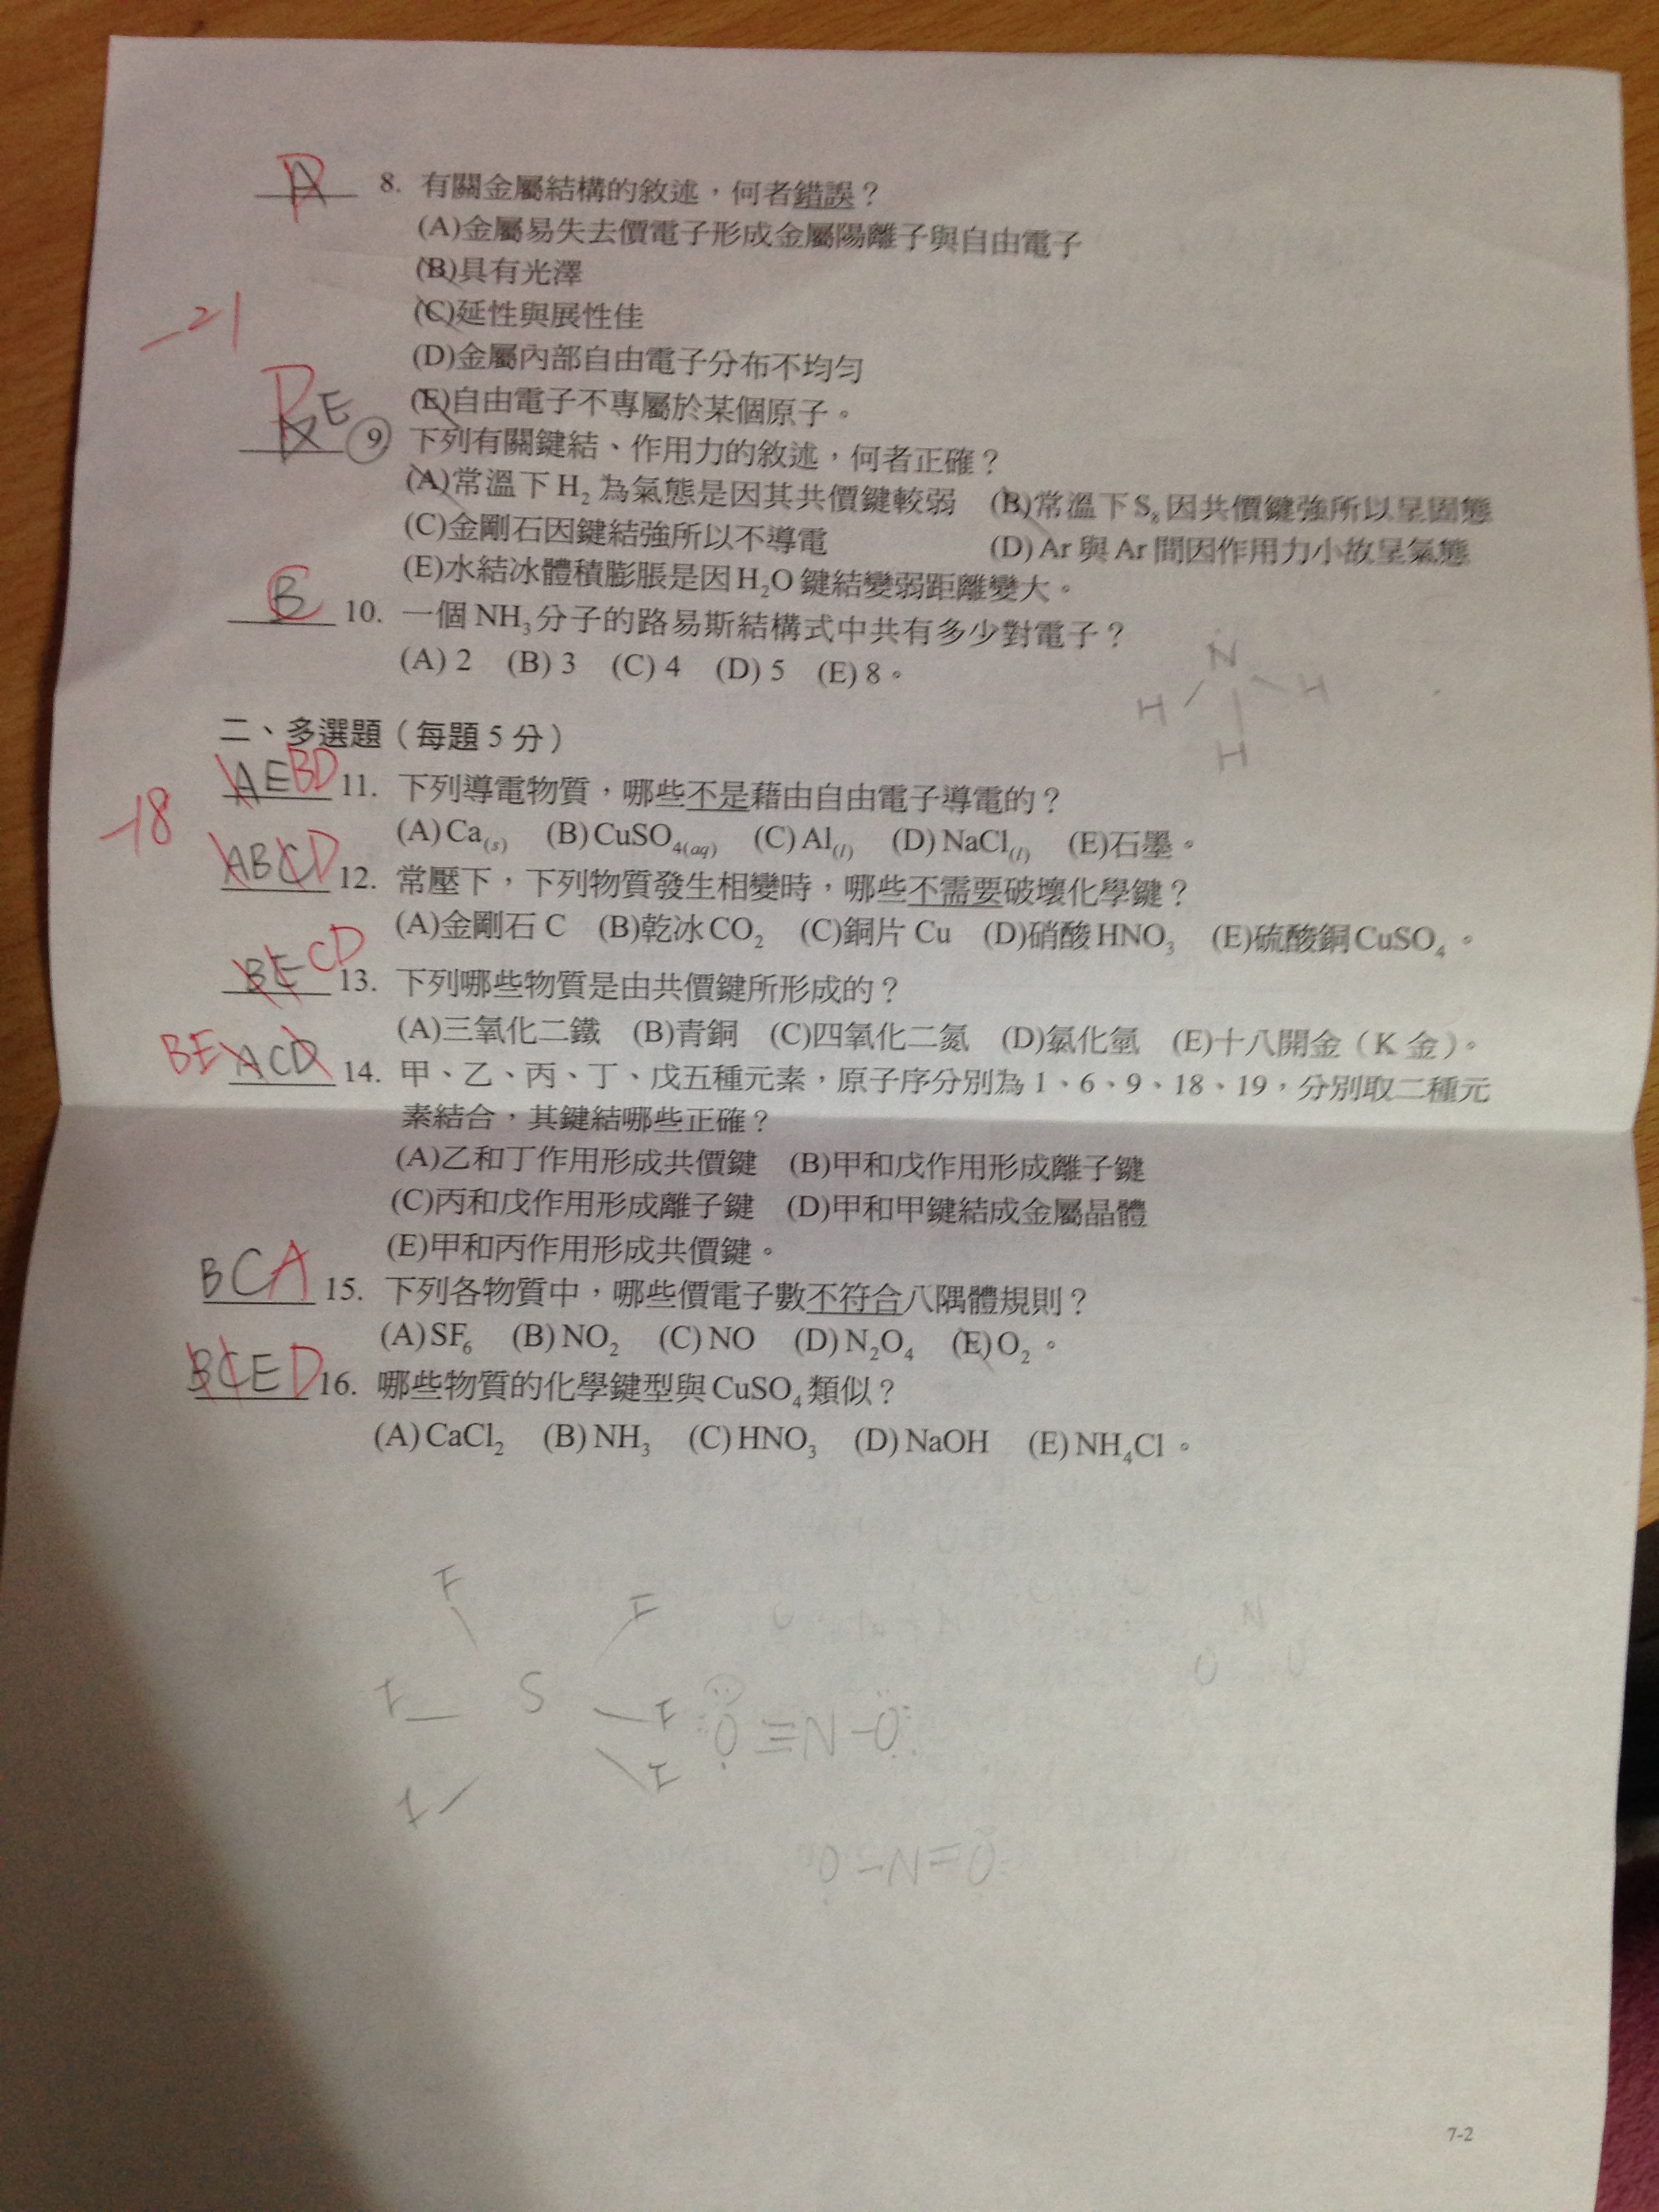 A D 8. 有關金屬結構的敘述，何者錯誤？
(A)金屬易失去價電子形成金屬陽離子與自由電子
(B)具有光澤
(C)延性與展性佳
-21
(D)金屬內部自由電子分布不均勻
(E)自由電子不專屬於某個原子。
E D 9 下列有關鍵結、作用力的敘述，何者正確？
(A)常溫下H₂為氣態是因其共價鍵較弱 (B)常溫下S₈因共價鍵強所以呈固態
(C)金剛石因鍵結強所以不導電 (D)Ar與Ar間因作用力小故呈氣態
(E)水結冰體積膨脹是因H₂O鍵結變弱距離變大。
B C 10. 一個NH₃分子的路易斯結構式中共有多少對電子？
(A) 2 (B) 3 (C) 4 (D) 5 (E) 8。
N
H H
H
二、多選題（每題5分）
AEBD 11. 下列導電物質，哪些不是藉由自由電子導電的？
-18
(A)Ca(s) (B)CuSO₄(aq) (C)Al(l) (D)NaCl(l) (E)石墨。
ABCD 12. 常壓下，下列物質發生相變時，哪些不需要破壞化學鍵？
(A)金剛石C (B)乾冰CO₂ (C)銅片Cu (D)硝酸HNO₃ (E)硫酸銅CuSO₄。
BE CD 13. 下列哪些物質是由共價鍵所形成的？
(A)三氧化二鐵 (B)青銅 (C)四氧化二氮 (D)氯化氫 (E)十八開金（K金）。
BE ACD 14. 甲、乙、丙、丁、戊五種元素，原子序分別為1、6、9、18、19，分別取二種元
素結合，其鍵結哪些正確？
(A)乙和丁作用形成共價鍵 (B)甲和戊作用形成離子鍵
(C)丙和戊作用形成離子鍵 (D)甲和甲鍵結成金屬晶體
(E)甲和丙作用形成共價鍵。
BCA 15. 下列各物質中，哪些價電子數不符合八隅體規則？
(A)SF₆ (B)NO₂ (C)NO (D)N₂O₄ (E)O₂。
BCED 16. 哪些物質的化學鍵型與CuSO₄類似？
(A)CaCl₂ (B)NH₃ (C)HNO₃ (D)NaOH (E)NH₄Cl。
F F
F S F
F F
O≡N-O
O-N=O
7-2